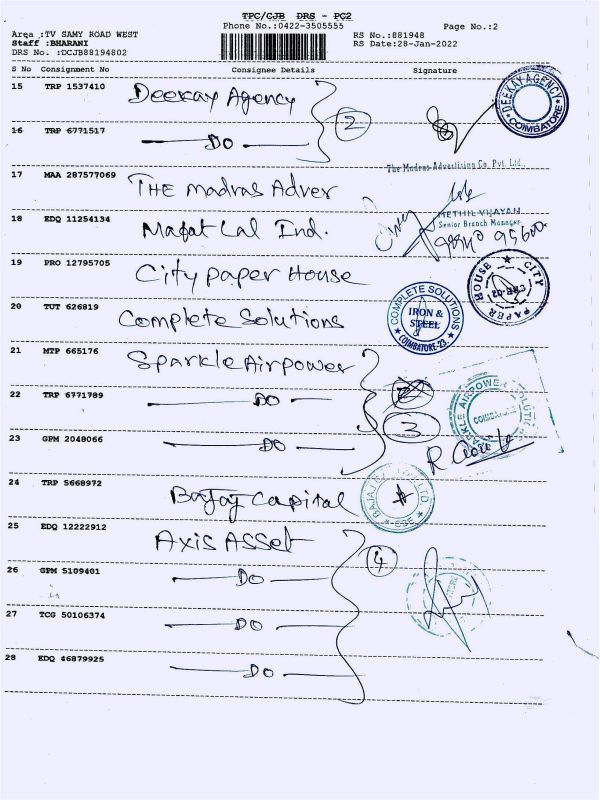 TPC/CJB DRS - PC2
Phone No.:0422-3505555
Page No.:2
Area :TV SAMY ROAD WEST
RS No.:881948
Staff :BHARANI
RS Date:28-Jan-2022
DRS No. :DCJB88194802
S No Consignment No Consignee Details Signature
15 TRP 1537410 Deekay Agency
2
DEEKAY AGENCY COIMBATORE
16 TRP 6771517 DO
The Madras Advertising Co. Pvt. Ltd.
17 MAA 287577069 THE Madras Adver
METHIL VIJAYAN
Senior Branch Manager
18 EDQ 11254134 Mafat Lal Ind.
19 PRO 12795705 City Paper House
CITY PAPER HOUSE
20 TUT 626819 Complete Solutions
COMPLETE SOLUTIONS
IRON &
STEEL
COIMBATORE-23
21 MTP 665176 Sparkle Airpower
22 TRP 6771789 DO
3
23 GPM 2048066 DO
24 TRP 5668972 Bajaj Capital
25 EDQ 12222912 Axis Asset
4
26 GPM 5109401 DO
27 TCG 50106374 DO
28 EDQ 46879925 DO